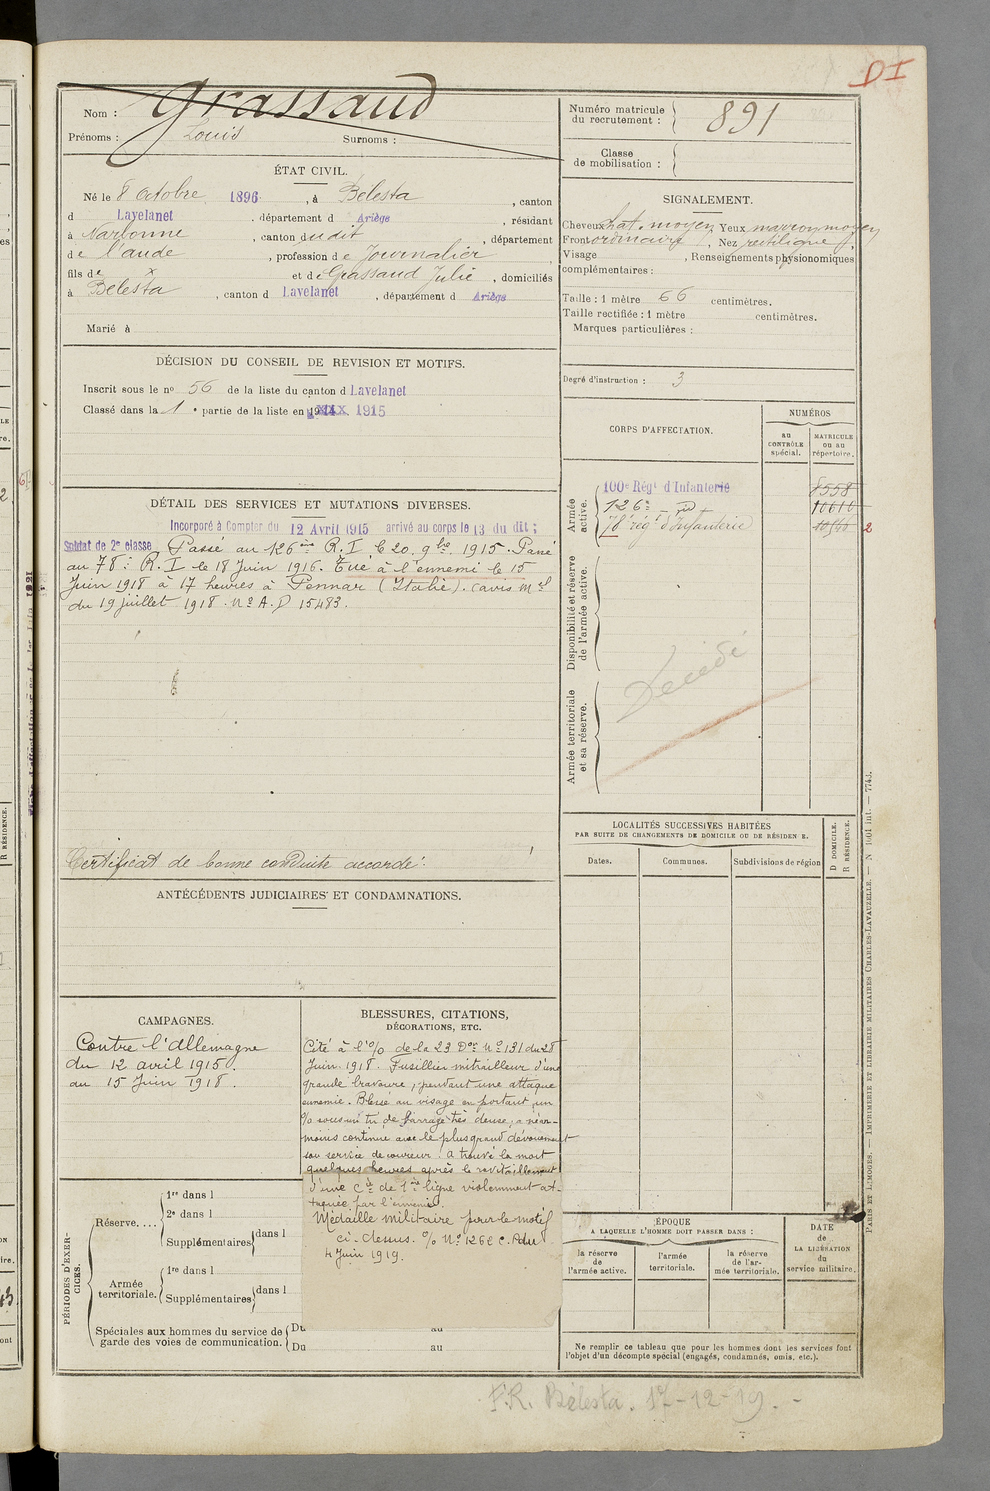 DI
Nom : Grassaud
Prénoms : Louis Surnoms :
Numéro matricule
du recrutement : 891
Classe
de mobilisation :
ÉTAT CIVIL.
Né le 8 Octobre 1896, à Bélesta, canton
d Lavelanet, département d Ariège, résidant
à Narbonne, canton dudit, département
de l'aude, profession de Journalier
fils de x et de Grassaud Julie, domiciliés
à Bélesta, canton d Lavelanet, département d Ariège
Marié à
SIGNALEMENT.
Cheveux chat. moyen Yeux marron moyen
Front ordinaire, Nez rectiligne
Visage , Renseignements physionomiques
complémentaires :
Taille : 1 mètre 66 centimètres.
Taille rectifiée : 1 mètre centimètres.
Marques particulières :
Degré d'instruction : 3
DÉCISION DU CONSEIL DE REVISION ET MOTIFS.
Inscrit sous le no 56 de la liste du canton d Lavelanet
Classé dans la 1e partie de la liste en 1915
CORPS D'AFFECTATION.
NUMÉROS
au
CONTRÔLE
spécial.
MATRICULE
ou au
répertoire.
Armée
active.
100e Régt d'Infanterie 8558
126e _ d° 10610
78e rég. d'Infanterie
2
Disponibilité et réserve
de l'armée active.
Armée territoriale
et sa réserve.
Décédé
DÉTAIL DES SERVICES ET MUTATIONS DIVERSES.
Incorporé à Compter du 12 Avril 1915 arrivé au corps le 13 du dit ;
Soldat de 2e classe Passé au 126ème R.I. le 20. 9bre. 1915. Passé
au 78e R.I. le 18 Juin 1916. Tué à l'ennemi le 15
Juin 1918 à 17 heures à Pennar (Italie). (avis Mel
du 19 juillet 1918. No A.D 15483.
Certificat de bonne conduite accordé :
ANTÉCÉDENTS JUDICIAIRES ET CONDAMNATIONS.
LOCALITÉS SUCCESSIVES HABITÉES
PAR SUITE DE CHANGEMENTS DE DOMICILE OU DE RÉSIDEN E.
Dates. Communes. Subdivisions de région
D DOMICILE.
R RÉSIDENCE.
CAMPAGNES.
Contre l'Allemagne
du 12 avril 1915.
au 15 Juin 1918.
BLESSURES, CITATIONS,
DÉCORATIONS, ETC.
Cité à l'% de la 23 Don No 131 du 28
Juin. 1918. Fusillier mitrailleur d'une
grande bravoure, pendant une attaque
ennemie. Blessé au visage en portant un
% sous un tir de barrage très dense, a néan-
moins continué avec le plus grand dévouement
son service de coureur. A trouvé la mort
quelques heures après le ravitaillement
d'une Cie de 1ère ligne violemment at-
taquée par l'ennemie.
Médaille militaire pour le motif
ci-dessus. % No 1266
4 Juin 1919.
PÉRIODES D'EXER-
CICES.
Réserve....
1re dans l
2e dans l
Supplémentaires dans l
Armée
territoriale.
1re dans l
Supplémentaires dans l
Spéciales aux hommes du service de
garde des voies de communication.
Du au
Du au
ÉPOQUE
A LAQUELLE L'HOMME DOIT PASSER DANS :
la réserve
de
l'armée active.
l'armée
territoriale.
la réserve
de l'ar-
mée territoriale.
DATE
de
LA LIBÉRATION
du
service militaire.
Ne remplir ce tableau que pour les hommes dont les services font
l'objet d'un décompte spécial (engagés, condamnés, omis, etc.).
PARIS ET LIMOGES. — IMPRIMERIE ET LIBRAIRIE MILITAIRES CHARLES-LAVAUZELLE. — N 1601 int. — 7743.
F.R. Bélesta. 17-12-19. -